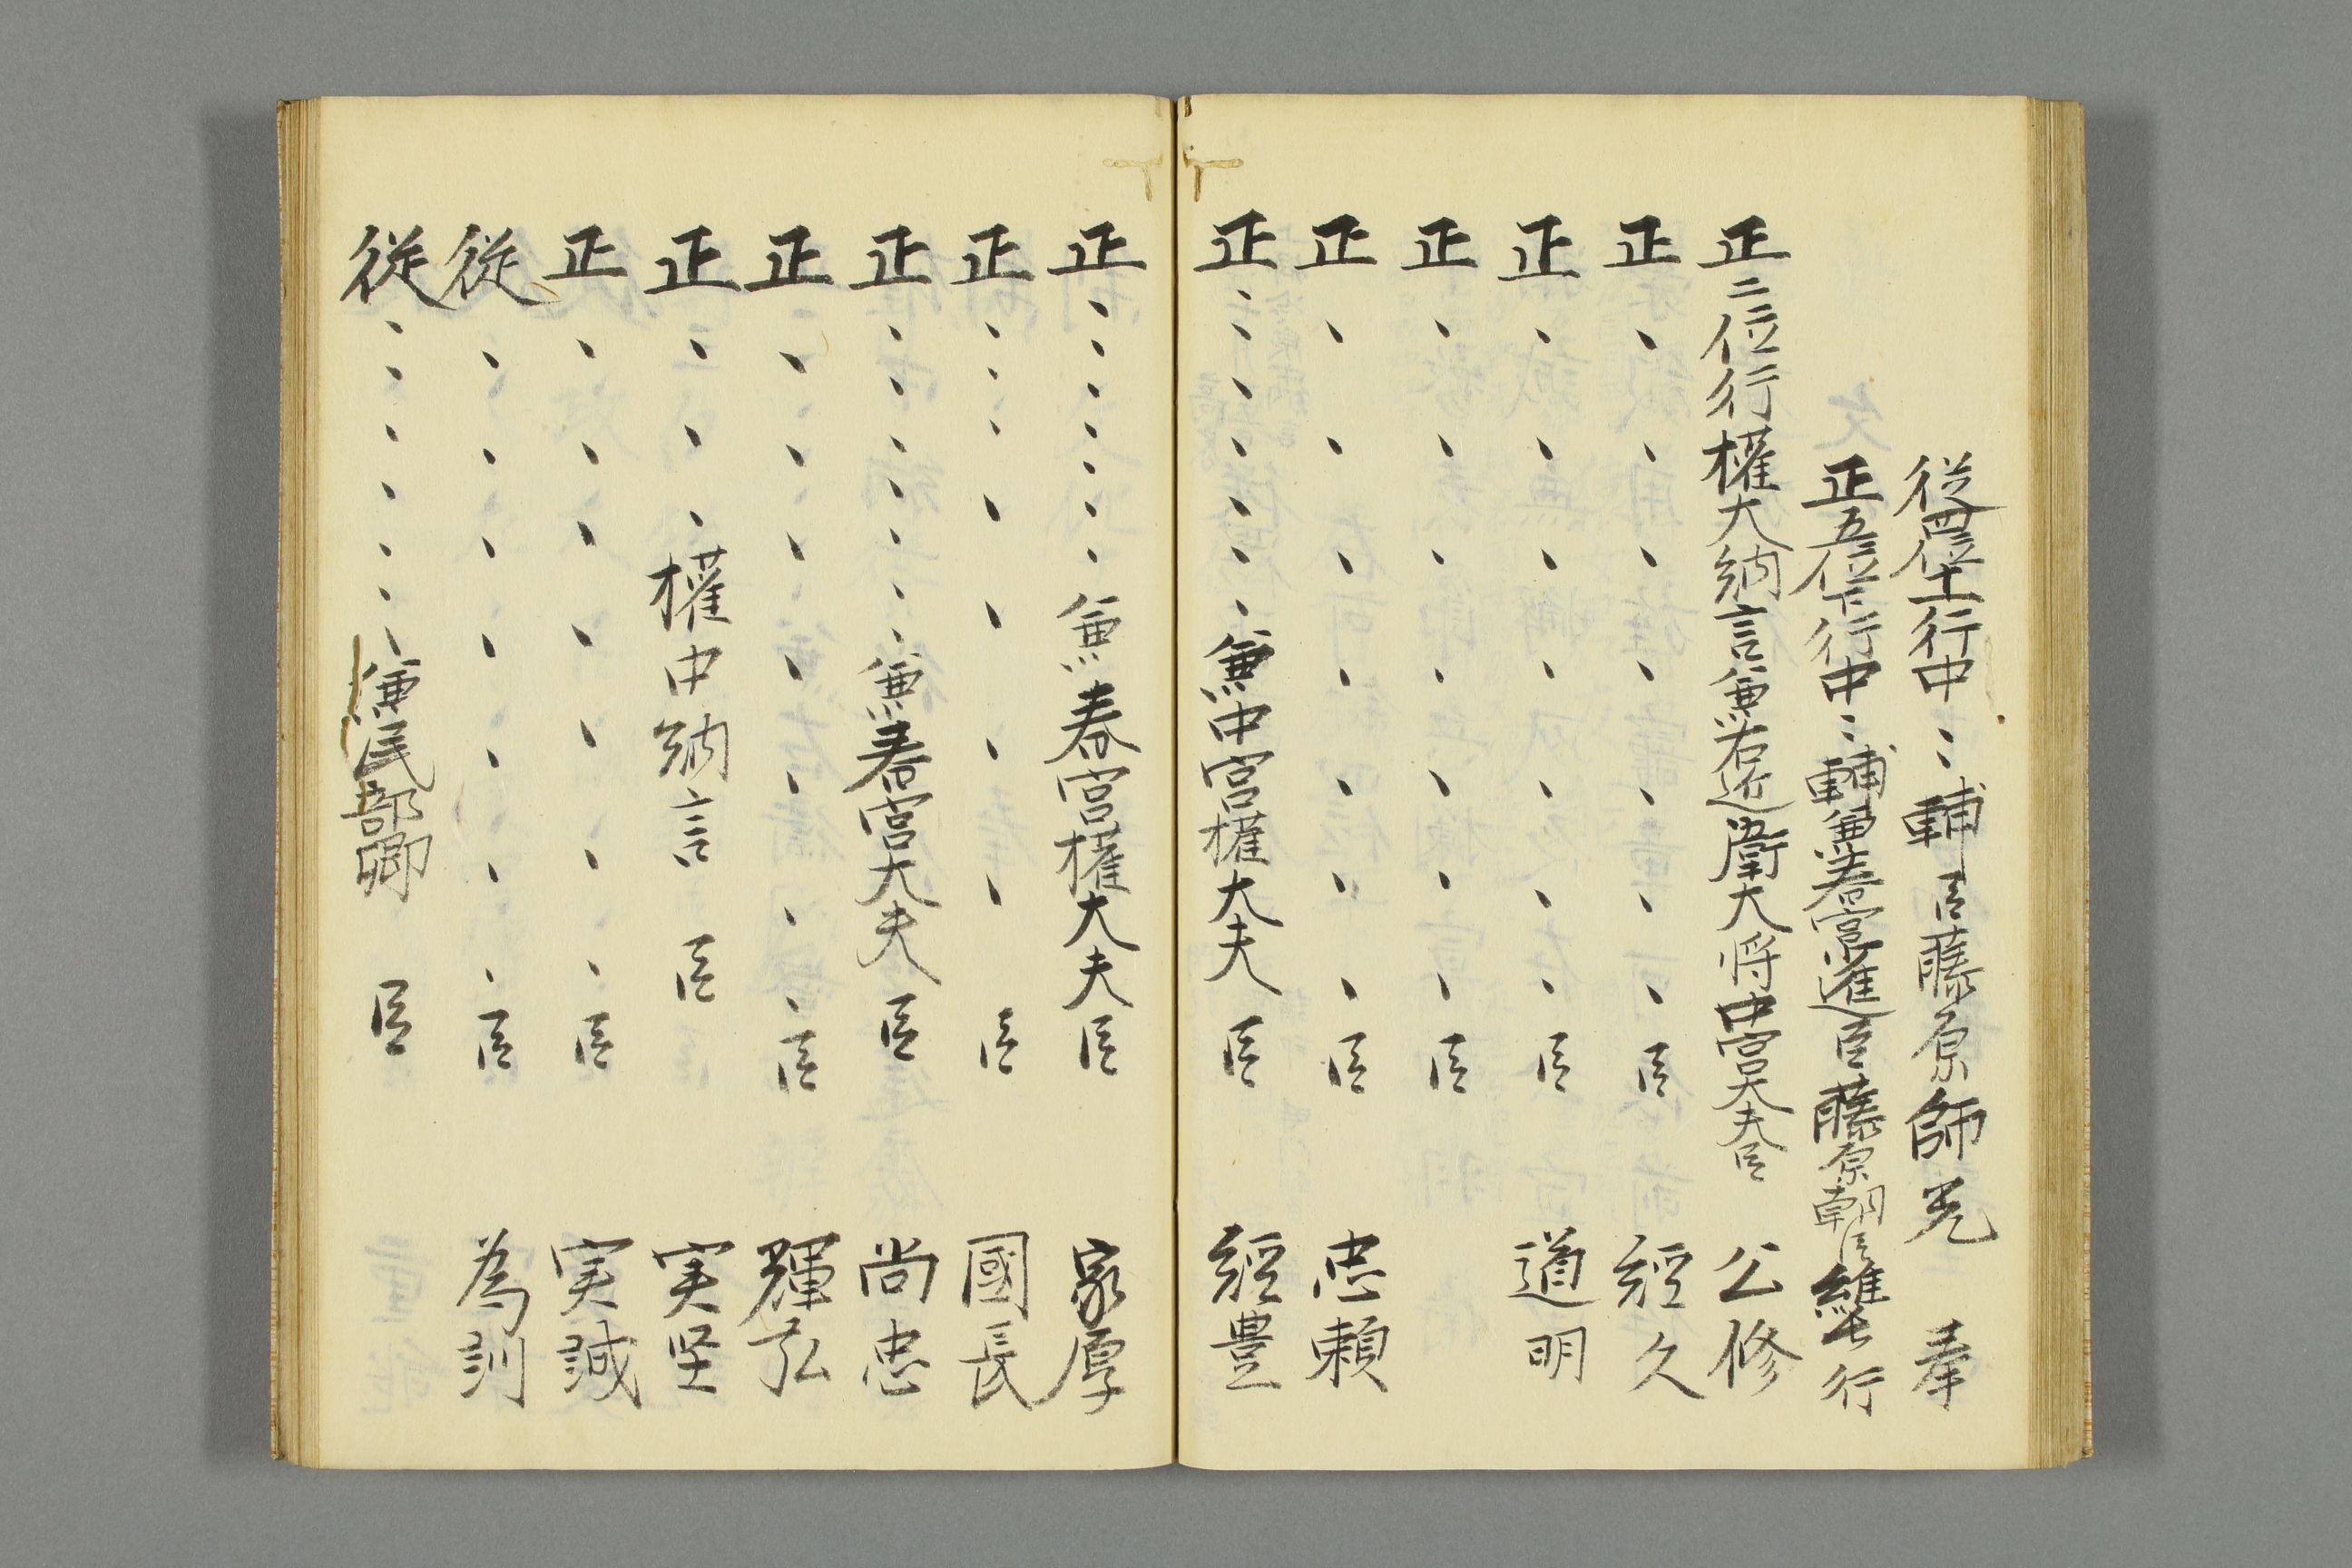 従四位上行中、、輔臣藤原師光 奉
正五位下行中、、輔兼春宮進臣藤原朝臣 行
正二位行權大納言兼右近衛大将中宮大夫臣 公修
正、、、、、、、臣 經久
正、、、、、、、臣 道明
正、、、、、、、臣
正、、、、、、、臣 忠頼
正、、、、、、、兼中宮權大夫 臣 經豊
正、、、、、、、兼春宮權大夫臣 家厚
正、、、、、、、臣 國長
正、、、、、、、兼春宮大夫臣 尚忠
正、、、、、、、臣 輝弘
正、、、權中納言 臣 実堅
正、、、、、、、臣 実誠
従、、、、、、、臣 為訓
従、、、、、、、兼民部卿 臣